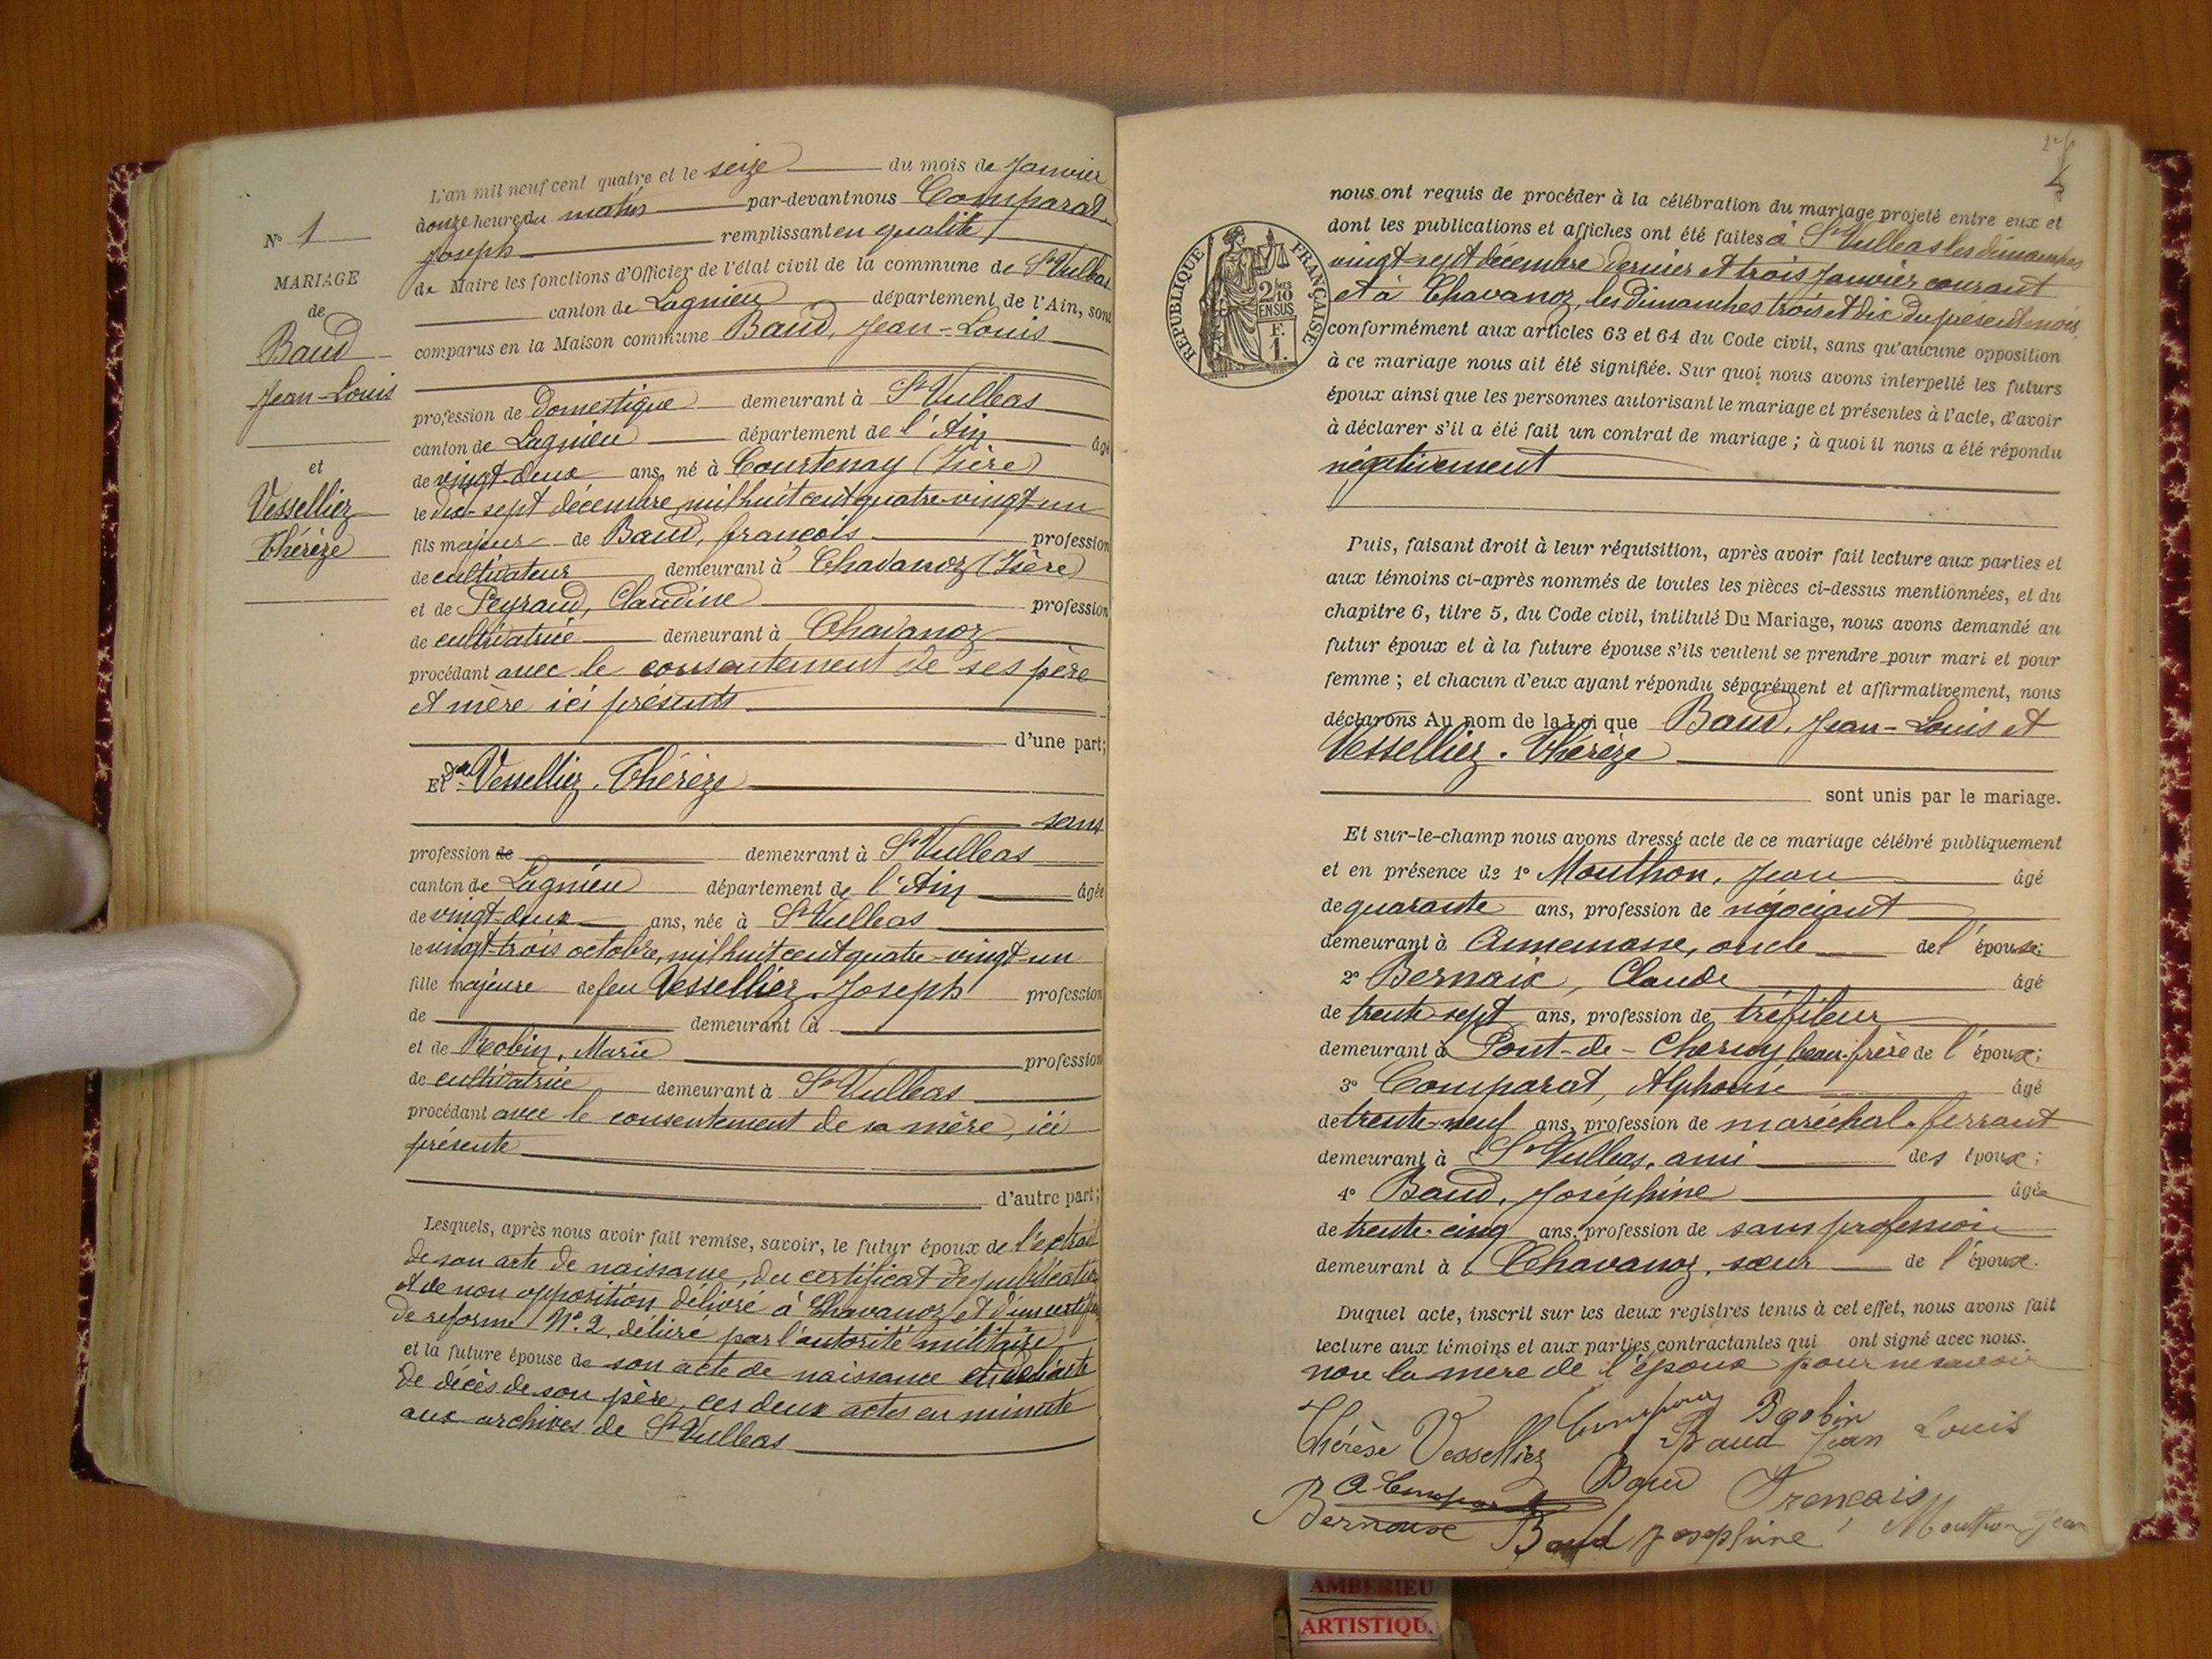 L'an mil neuf cent quatre et le seize du mois de Janvier
à onze heure du matin par-devant nous Comparat
Joseph remplissant en qualité
de Maire les fonctions d'Officier de l'état civil de la commune de St Vulbas
canton de Lagnieu département de l'Ain, sont
comparus en la Maison commune Baud, Jean-Louis
profession de domestique demeurant à St Vulbas
canton de Lagnieu département de l'Ain âgé
de vingt-deux ans, né à Courtenay (Isère)
le dix-sept décembre mil huit cent quatre-vingt-un
fils majeur de Baud, françois profession
de cultivateur demeurant à Chavanoz (Isère)
et de Peyraud, Claudine profession
de cultivatrice demeurant à Chavanoz
procédant avec le consentement de ses père
et mère ici présents
d'une part;
Et dlle Vessellier, Thérèze
sans
profession de demeurant à St Vulbas
canton de Lagnieu département de l'Ain âgée
de vingt-deux ans, née à St Vulbas
le vingt-trois octobre, mil huit cent quatre-vingt-un
fille majeure de feu Vessellier, Joseph profession
de demeurant à
et de Robin, Marie profession
de cultivatrice demeurant à St Vulbas
procédant avec le consentement de sa mère, ici
présente
d'autre part;
Lesquels, après nous avoir fait remise, savoir, le futur époux de l'extrait
de son acte de naissance, du certificat de publication
et de non opposition délivré à Chavanoz et d'un certificat
de reforme No. 2, délivré par l'autorité militaire
et la future épouse de son acte de naissance et de l'acte
de décès de son père, ces deux actes en minute
aux archives de St Vulbas
No 1
MARIAGE
de
Baud
Jean-Louis
et
Vessellier
Thérèze
RÉPUBLIQUE FRANÇAISE
2/10MES
EN SUS
F.
1.
nous ont requis de procéder à la célébration du mariage projeté entre eux et
dont les publications et affiches ont été faites à St Vulbas les dimanches
vingt-sept décembre dernier et trois Janvier courant
et à Chavanoz, les dimanches trois et dix du présent mois
conformément aux articles 63 et 64 du Code civil, sans qu'aucune opposition
à ce mariage nous ait été signifiée. Sur quoi nous avons interpellé les futurs
époux ainsi que les personnes autorisant le mariage et présentes à l'acte, d'avoir
à déclarer s'il a été fait un contrat de mariage; à quoi il nous a été répondu
négativement
Puis, faisant droit à leur réquisition, après avoir fait lecture aux parties et
aux témoins ci-après nommés de toutes les pièces ci-dessus mentionnées, et du
chapitre 6, titre 5, du Code civil, intitulé Du Mariage, nous avons demandé au
futur époux et à la future épouse s'ils veulent se prendre pour mari et pour
femme; et chacun d'eux ayant répondu séparément et affirmativement, nous
déclarons Au nom de la Loi que Baud, Jean-Louis et
Vessellier, Thérèze
sont unis par le mariage.
Et sur-le-champ nous avons dressé acte de ce mariage célébré publiquement
et en présence de 1o Mouthon, Jean âgé
de quarante ans, profession de négociant
demeurant à Annemasse, oncle de l'épouse;
2o Bernaix, Claude âgé
de trente-sept ans, profession de tréfileur
demeurant à Pont-de-Cheruy beau-frère de l'époux;
3o Comparat, Alphonse âgé
de trente-neuf ans, profession de maréchal-ferrant
demeurant à St Vulbas, ami des époux;
4o Baud, Joséphine âgée
de trente-cinq ans, profession de sans profession
demeurant à Chavanoz, sœur de l'époux.
Duquel acte, inscrit sur les deux registres tenus à cet effet, nous avons fait
lecture aux témoins et aux parties contractantes qui ont signé avec nous.
non la mère de l'époux pour ne savoir
Robin
Thérèse Vessellier Baud Jean Louis
Baud Francais
Baud Josephine Mouthon Jean
AMBERIEU
ARTISTIQU